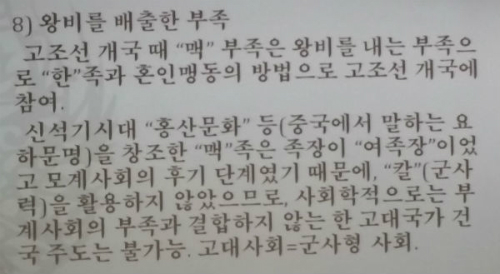 8) 왕비를 배출한 부족
고조선 개국 때 “맥” 부족은 왕비를 내는 부족으
로 “한”족과 혼인맹동의 방법으로 고조선 개국에
참여.
신석기시대 “홍산문화” 등(중국에서 말하는 요
하문명)을 창조한 “맥”족은 족장이 “여족장”이었
고 모계사회의 후기 단계였기 때문에, “칼”(군사
력)을 활용하지 않았으므로, 사회학적으로는 부
계사회의 부족과 결합하지 않는 한 고대국가 건
국 주도는 불가능. 고대사회=군사형 사회.